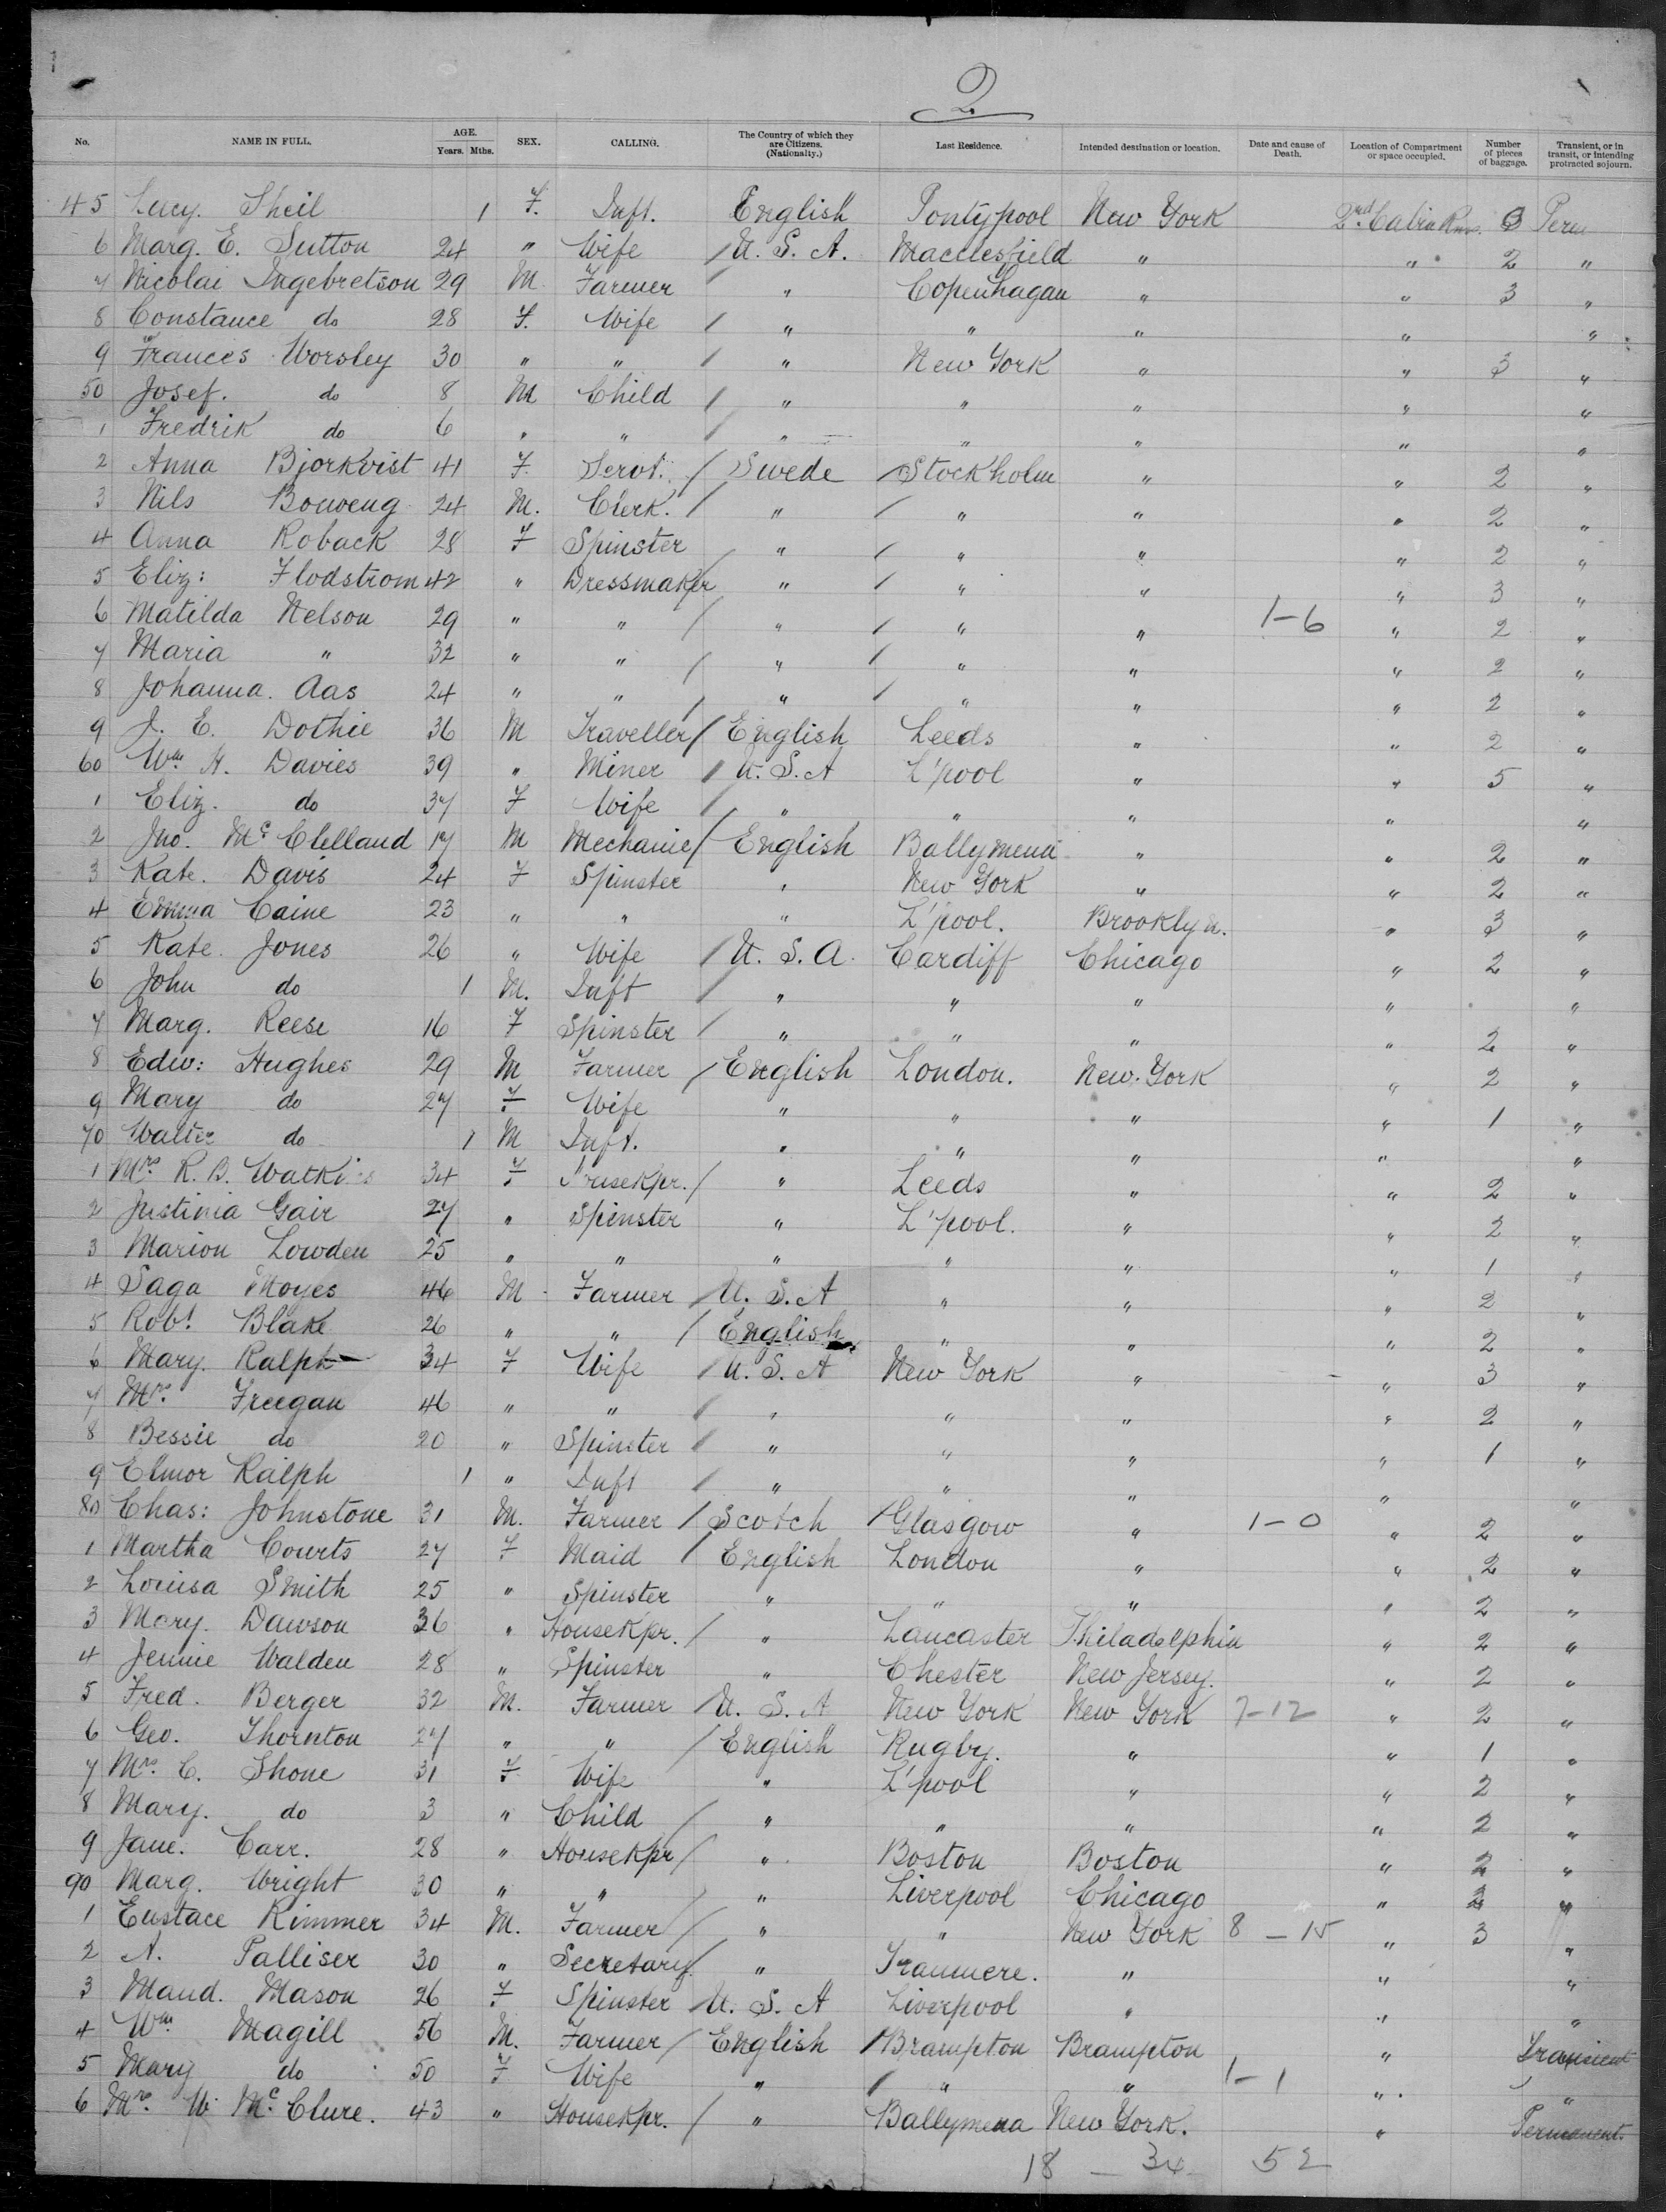 2
No. NAME IN FULL. AGE. Years. Mths. SEX. CALLING. The Country of which they are Citizens. (Nationalty.) Last Residence. Intended destination or location. Date and cause of Death. Location of Compartment or space occupied. Number of pieces of baggage. Transient, or in transit, or intending protracted sojourn.
45 Lucy. Sheil 1 F. Inft. English Pontypool New York 2nd Cabin 3
6 Marg. E. Sutton 24 " Wife / U. S. A. Macclesfield " " 2 "
7 Nicolai Ingebretson 29 M Farmer / " Copenhagan " " 3 "
8 Constance do 28 F. Wife / " " " " "
9 Frances Worsley 30 " " / " New York " " 3 "
50 Josef. do 8 M Child / " " " " "
1 Fredrik do 6 " " / " " " " "
2 Anna Bjorkvist 41 F Servt. / Swede / Stockholm " " 2 "
3 Nils Bouveng 24 M. Clerk. / " / " " " 2 "
4 Anna Roback 28 F Spinster / " / " " " 2 "
5 Eliz: Flodstrom 42 " Dressmaker / " / " " " 3 "
6 Matilda Nelson 29 " " / " / " " 1-6 " 2 "
7 Maria " 32 " " / " / " " " 2 "
8 Johanna. Aas 24 " " / " / " " " 2 "
9 J. E. Dothie 36 M Traveller / English Leeds " " 2 "
60 Wm H. Davies 39 " Miner / U. S. A L'pool " " 5 "
1 Eliz. do 37 F Wife / " " " " "
2 Jno. McClelland 17 M Mechanic / English Ballymena " " 2 "
3 Kate. Davis 24 F Spinster " New York " " 2 "
4 Emma Caine 23 " " " L'pool. Brooklyn. " 3 "
5 Kate Jones 26 " Wife / U. S. A. Cardiff Chicago " 2 "
6 John do 1 M. Inft / " " " " "
7 Marg. Reese 16 F Spinster / " " " " 2 "
8 Edw: Hughes 29 M Farmer / English London. New. York " 2 "
9 Mary do 27 F Wife " " " " 1 "
70 Walter do 1 M Inft. " " " " "
1 Mrs R. B. Watkins 34 F Housekpr. / " Leeds " " 2 "
2 Justinia Gair 27 " Spinster " L'pool. " " 2 "
3 Marion Lowden 25 " " " " " " 1 "
4 Saga Moyes 46 M Farmer / U. S. A " " " 2 "
5 Robt Blake 26 " " / English " " " 2 "
6 Mary. Ralph 34 F Wife / U. S. A New York " " 3 "
7 Mrs. Freegan 46 " " / " " " " 2 "
8 Bessie do 20 " Spinster / " " " " 1 "
9 Elmor Ralph 1 " Inft / " " " " "
80 Chas: Johnstone 31 M. Farmer / Scotch / Glasgow " 1-0 " 2 "
1 Martha Courts 27 F Maid / English London " " 2 "
2 Louisa Smith 25 " Spinster " " " " 2 "
3 Mary. Dawson 36 " Housekpr. / " Lancaster Philadelphia " 2 "
4 Jennie Walden 28 " Spinster " Chester New Jersey. " 2 "
5 Fred. Berger 32 M. Farmer / U. S. A New York New York 7-12 " 2 "
6 Geo. Thornton 27 " " / English Rugby. " " 1 "
7 Mrs. C. Shone 31 F Wife " L'pool " " 2 "
8 Mary. do 3 " Child / " " " " 2 "
9 Jane. Carr. 28 " Housekpr / " Boston Boston " 2 "
90 Marg. Wright 30 " " / " Liverpool Chicago " 2 "
1 Eustace Rimmer 34 M. Farmer / " " New York 8 - 15 " 3 "
2 A. Palliser 30 " Secretary. / " Tranmere. " " "
3 Maud. Mason 26 F Spinster U. S. A Liverpool " " "
4 Wm Magill 56 M. Farmer / English / Brampton Brampton " Transient
5 Mary do 50 F Wife " / " " 1-1 " "
6 Mrs. W. McClure. 43 " Housekpr. / " Ballymena New York. " Permanent.
18 - 34 52